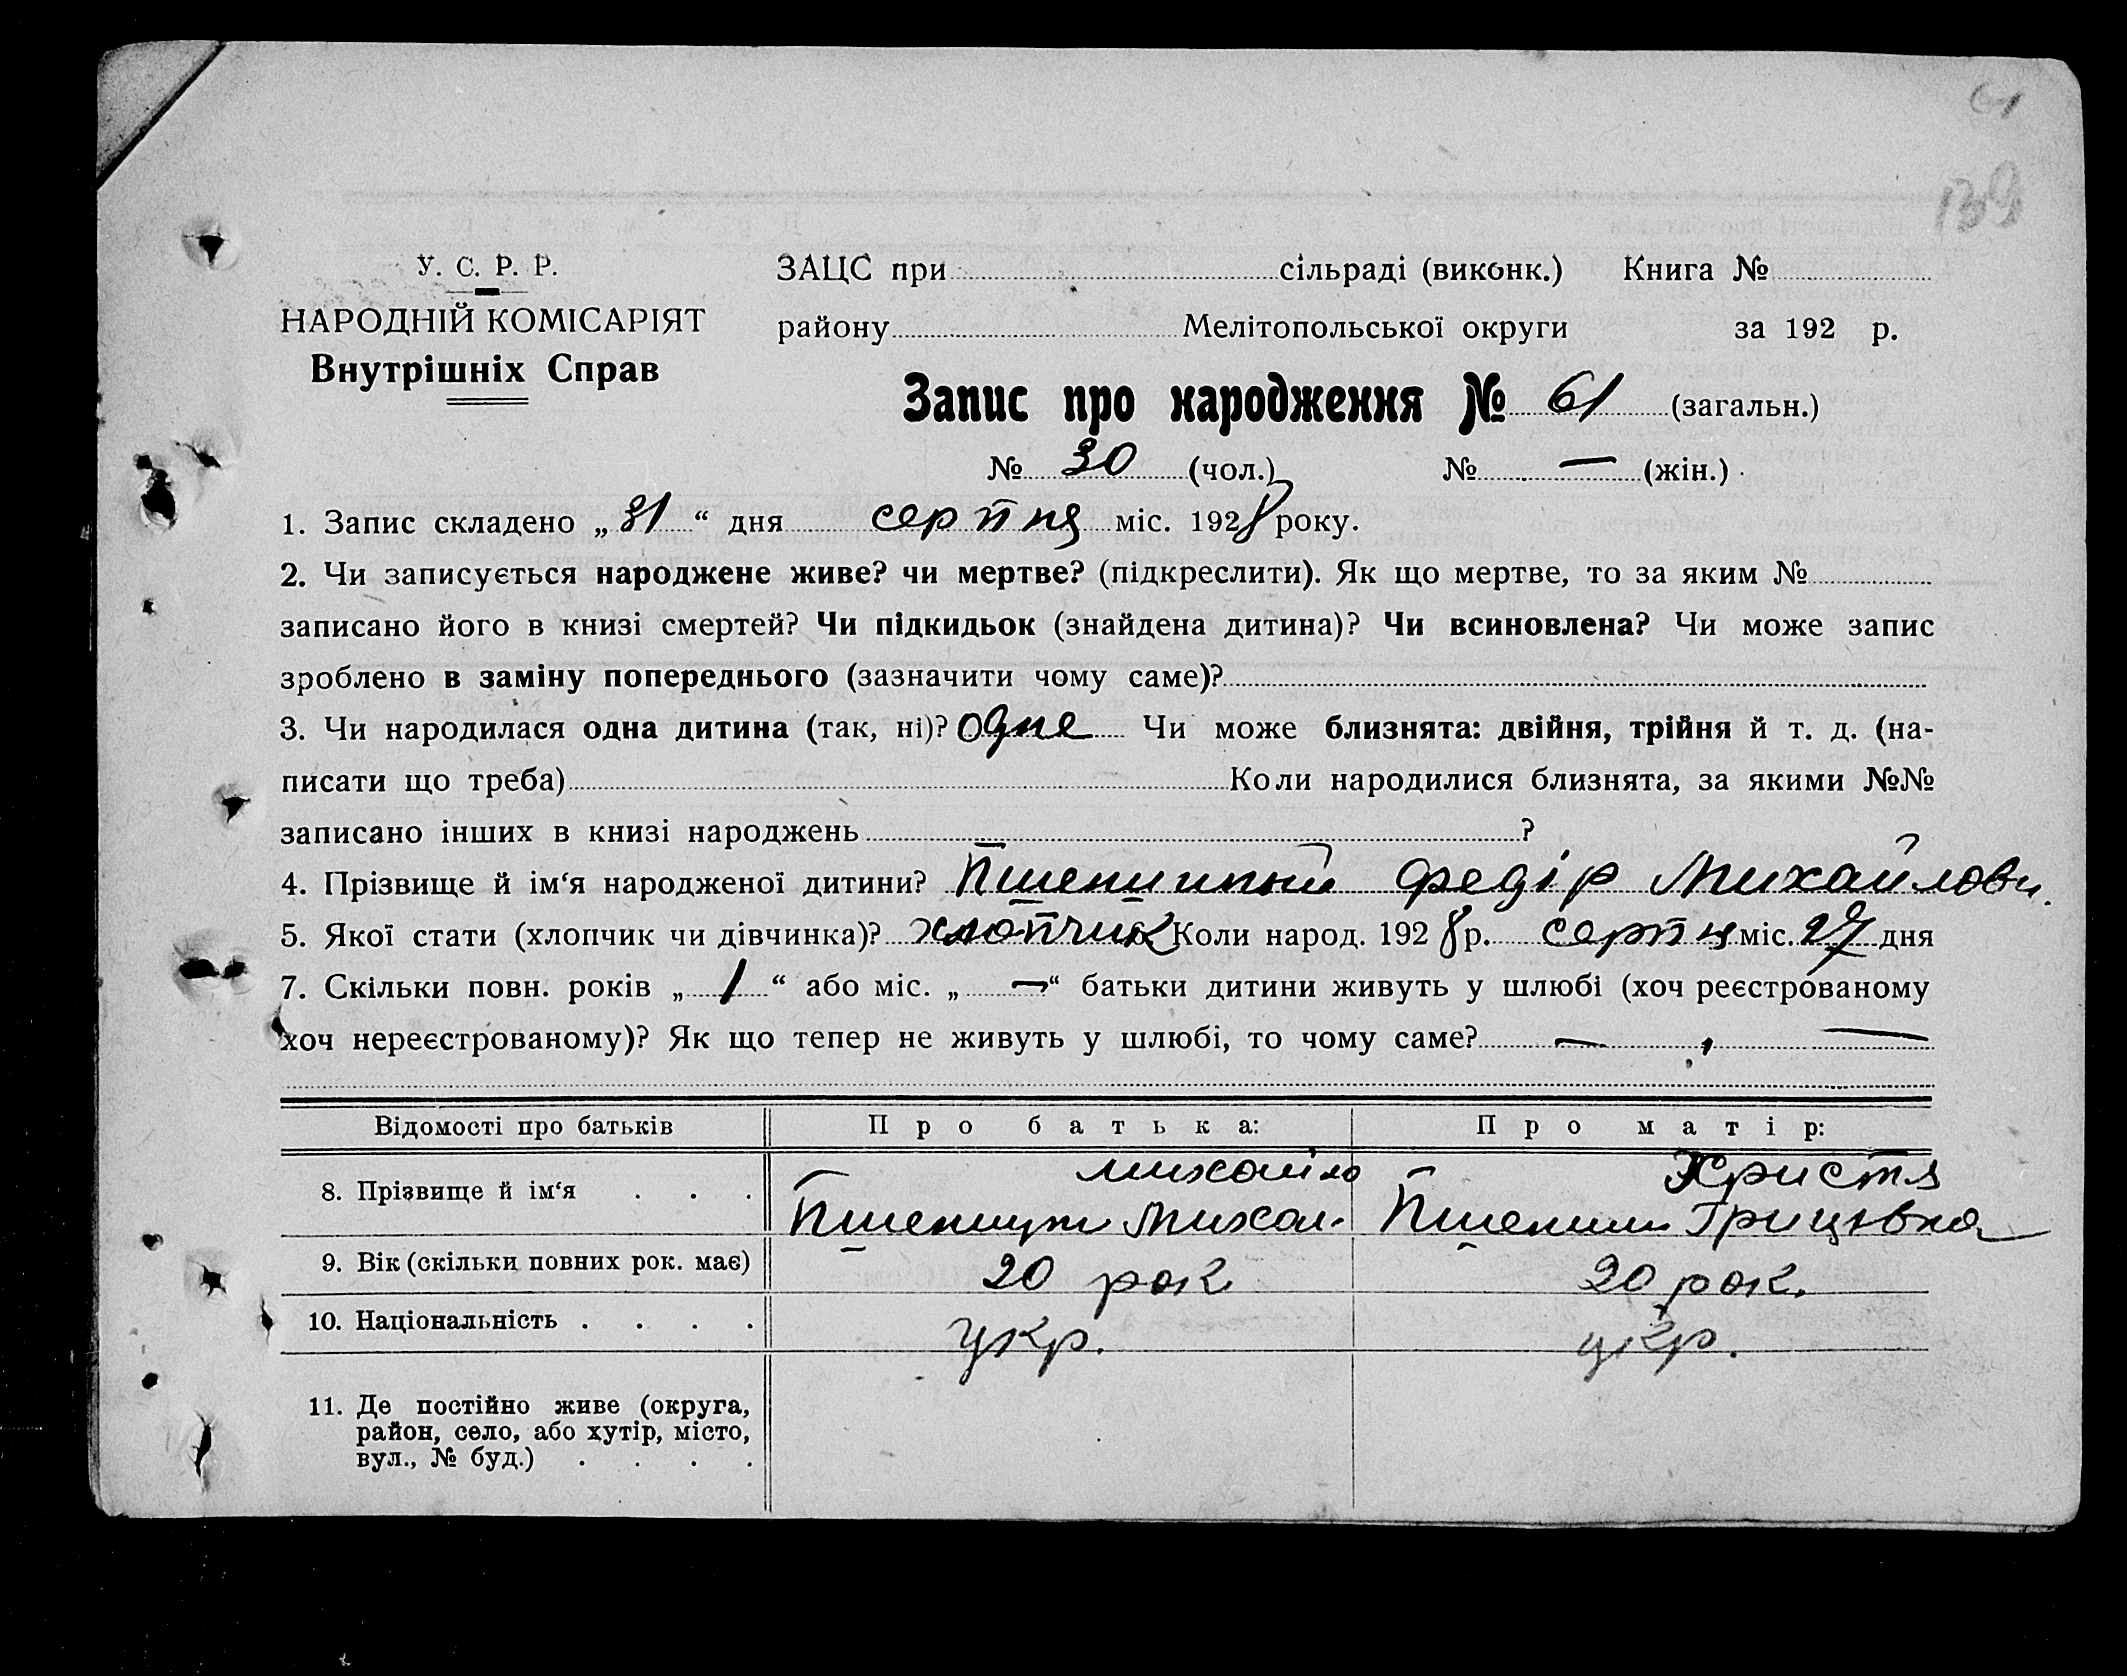 61
139
У. С. Р. Р.
НАРОДНІЙ КОМІСАРІЯТ
Внутрішніх Справ
ЗАЦС при сільраді (виконк.) Книга №
району Мелітопольської округи за 192 р.
Запис про народження № 61 (загальн.)
№ 30 (чол.) № — (жін.)
1. Запис складено „ 31 “ дня серпня міс. 1928 року.
2. Чи записується народжене живе? чи мертве? (підкреслити). Як що мертве, то за яким №
записано його в книзі смертей? Чи підкидьок (знайдена дитина)? Чи всиновлена? Чи може запис
зроблено в заміну попереднього (зазначити чому саме)?
3. Чи народилася одна дитина (так, ні)? одне Чи може близнята: двійня, трійня й т. д. (на-
писати що треба) Коли народилися близнята, за якими №№
записано інших в книзі народжень ?
4. Прізвище й ім‘я народженої дитини? Пшенишный Федір Михайлови
5. Якої стати (хлопчик чи дівчинка)? хлопчик Коли народ. 1928 р. серпн міс. 27 дня
7. Скільки повн. років „ 1 “ або міс. „ — “ батьки дитини живуть у шлюбі (хоч реєстрованому
хоч нереєстрованому)? Як що тепер не живуть у шлюбі, то чому саме? — , —
Відомості про батьків Про батька: Про матір:
8. Прізвище й ім‘я . . . михайло Христя
Михай. Грицівна
9. Вік (скільки повних рок. має) 20 рок 20 рок.
10. Національність . . . . укр. укр.
11. Де постійно живе (округа,
район, село, або хутір, місто,
вул., № буд.) . . . .